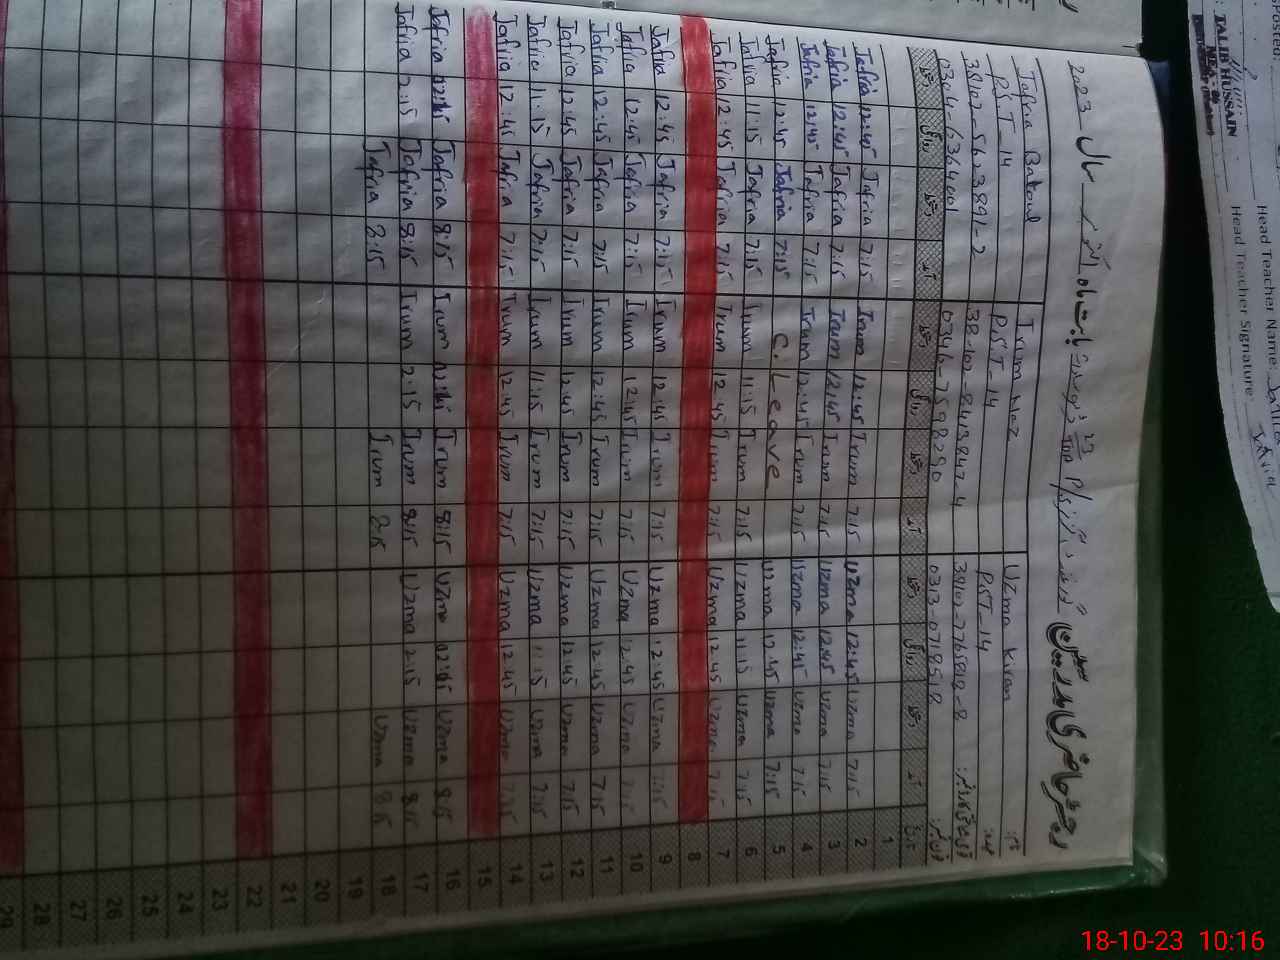 رجسٹر حاضری مدرسین
سال 2023
Jafria Batool Irum Naz Uzma Kiran نام:
PST-14 PST-14 PST-14 عہدہ:
38102-5633891-2 38102-8413847-4 38102-7765818-8
0304-6364001 0346-7598290 0313-0718518
1
Jafria 12:45 Jafria 7:15 Irum 12:45 Irum 7:15 Uzma 12:45 Uzma 7:15 2
Jafria 12:45 Jafria 7:15 Irum 12:45 Irum 7:15 Uzma 12:45 Uzma 7:15 3
Jafria 12:45 Jafria 7:15 Irum 12:45 Irum 7:15 Uzma 12:45 Uzma 7:15 4
Jafria 12:45 Jafria 7:15 C.Leave Uzma 12:45 Uzma 7:15 5
Jafria 11:15 Jafria 7:15 Irum 11:15 Irum 7:15 Uzma 11:15 Uzma 7:15 6
Jafria 12:45 Jafria 7:15 Irum 12:45 Irum 7:15 Uzma 12:45 Uzma 7:15 7
8
Jafria 12:45 Jafria 7:15 Irum 12:45 Irum 7:15 Uzma 12:45 Uzma 7:15 9
Jafria 12:45 Jafria 7:15 Irum 12:45 Irum 7:15 Uzma 12:45 Uzma 7:15 10
Jafria 12:45 Jafria 7:15 Irum 12:45 Irum 7:15 Uzma 12:45 Uzma 7:15 11
Jafria 12:45 Jafria 7:15 Irum 12:45 Irum 7:15 Uzma 12:45 Uzma 7:15 12
Jafria 11:15 Jafria 7:15 Irum 11:15 Irum 7:15 Uzma 11:15 Uzma 7:15 13
Jafria 12:45 Jafria 7:15 Irum 12:45 Irum 7:15 Uzma 12:45 Uzma 7:15 14
15
Jafria 02:15 Jafria 8:15 Irum 02:15 Irum 8:15 Uzma 02:15 Uzma 8:15 16
Jafria 2:15 Jafria 8:15 Irum 2:15 Irum 8:15 Uzma 2:15 Uzma 8:15 17
Jafria 8:15 Irum 8:15 Uzma 8:15 18
19
20
21
22
23
24
25
26
27
28
29
Head Teacher Name:
Head Teacher Signature
TALIB HUSSAIN
18-10-23 10:16